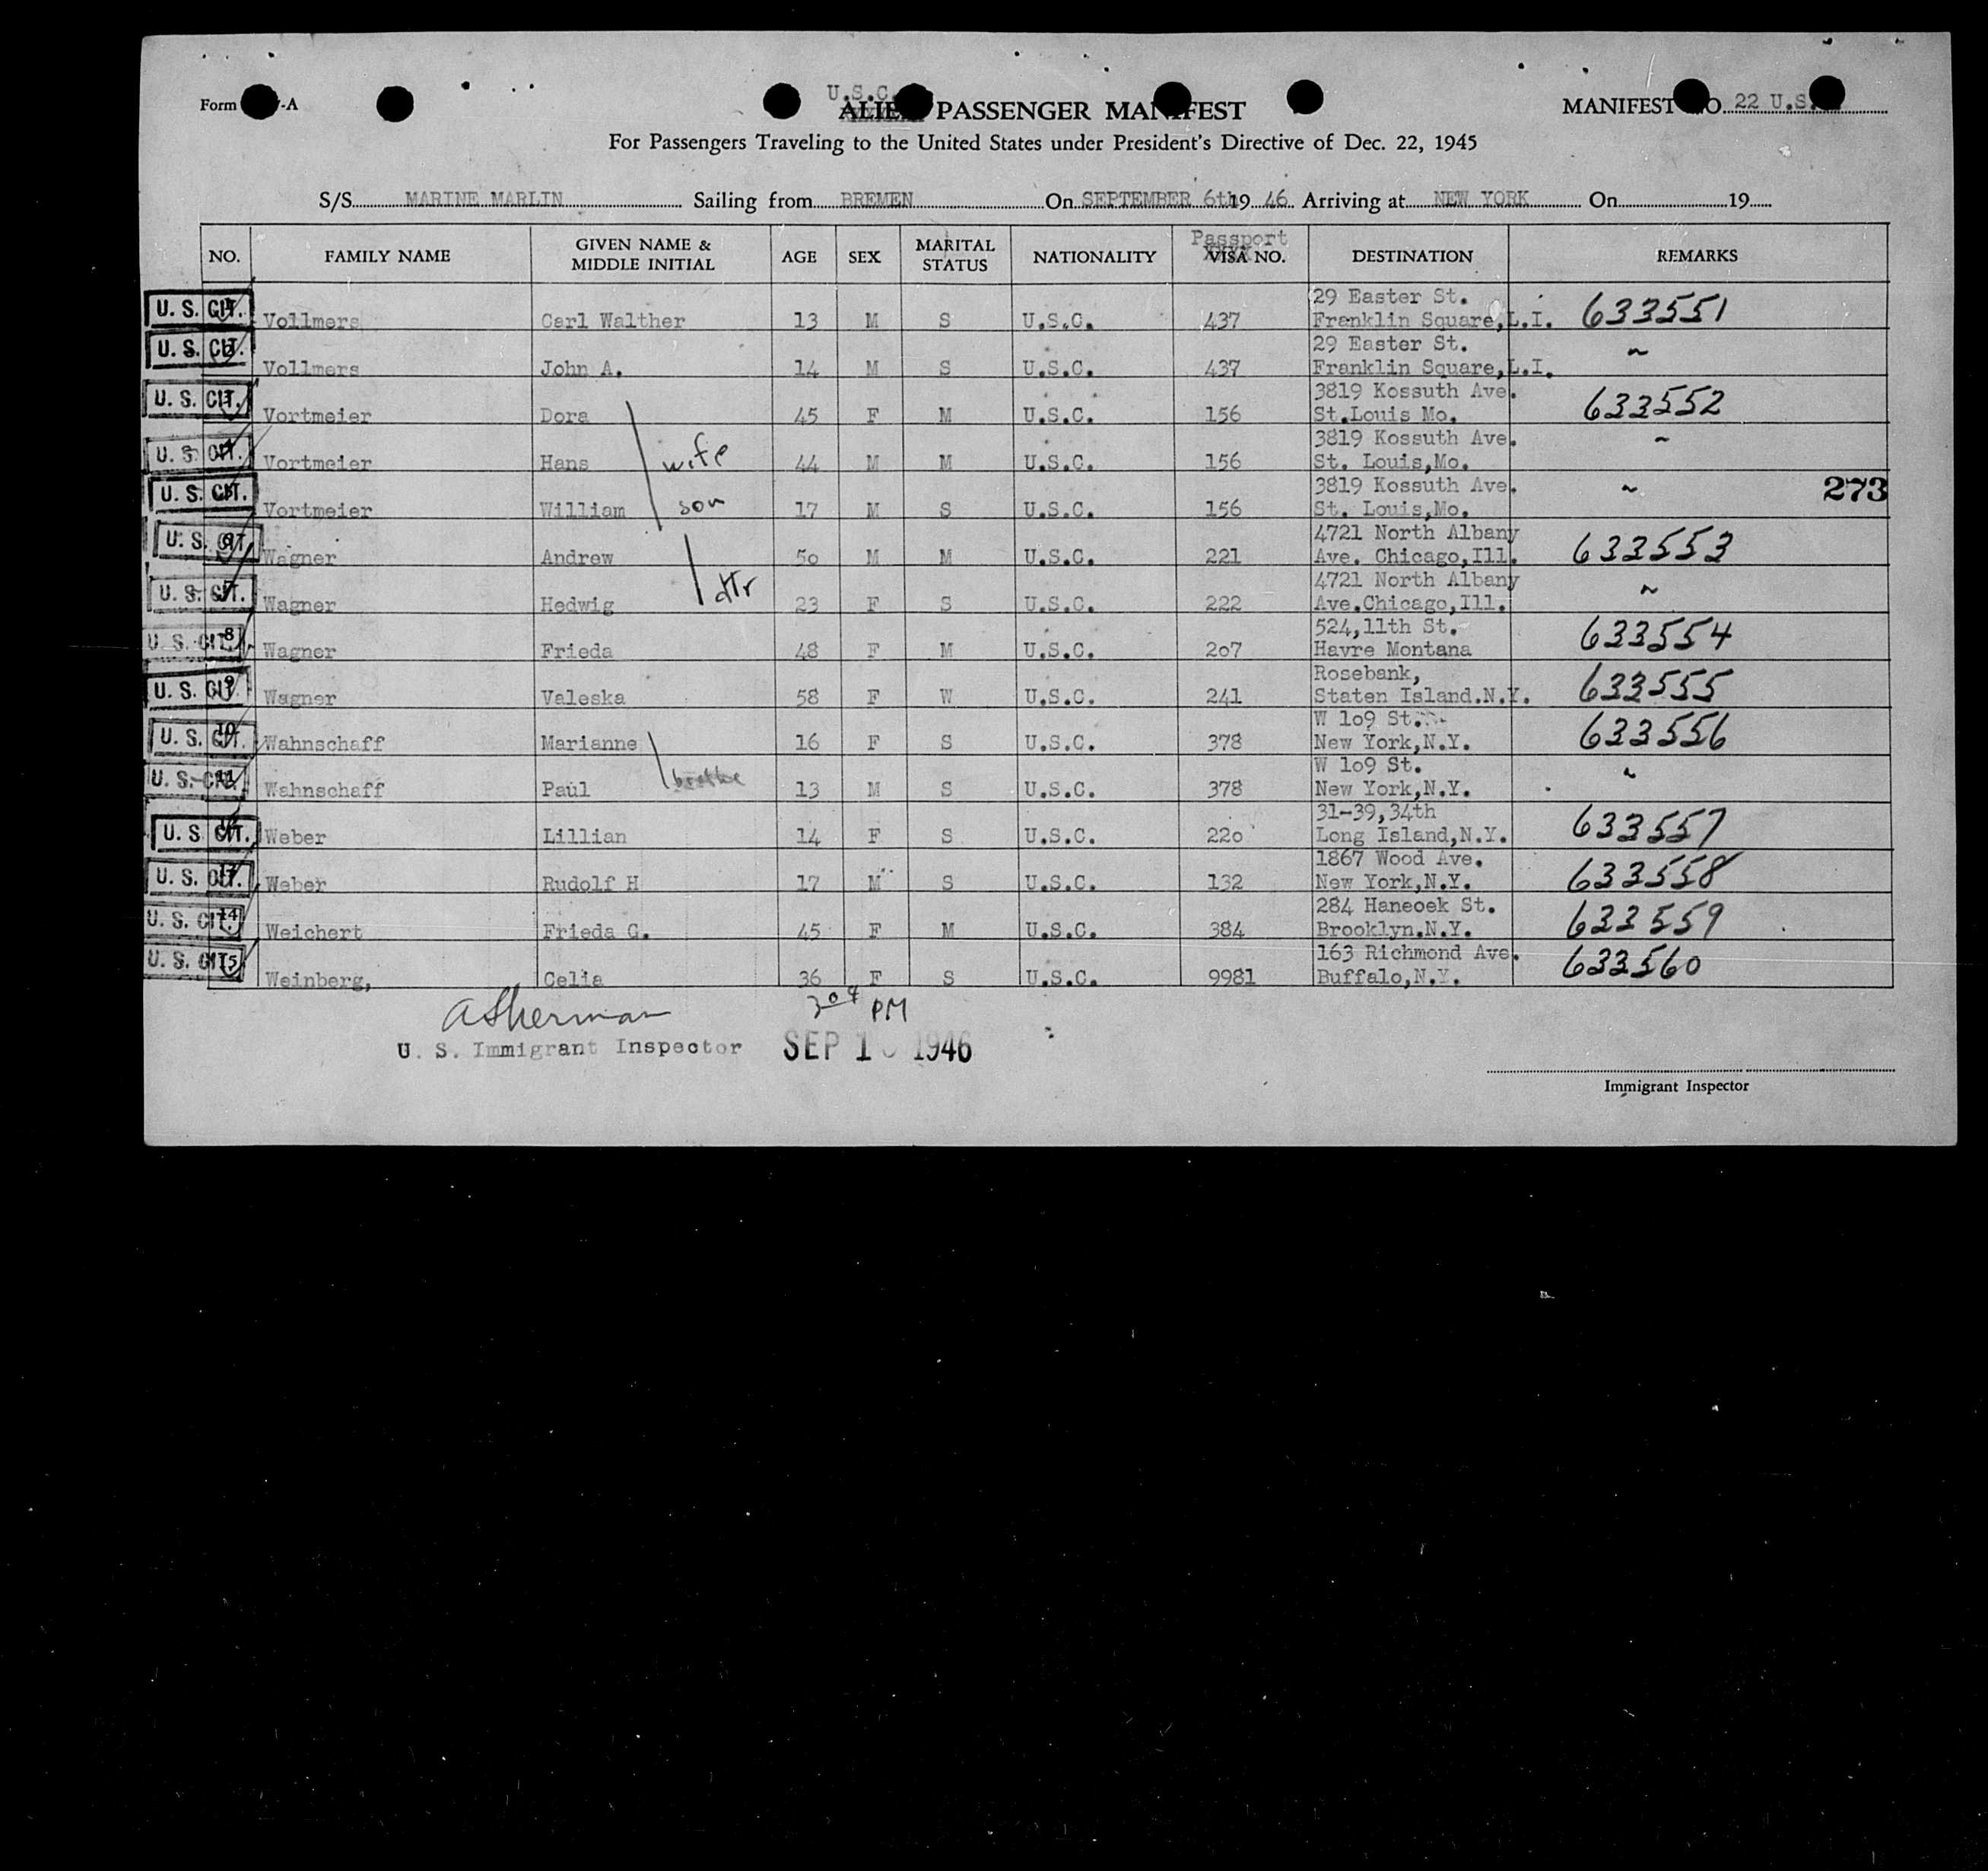 U.S.C.
Form -A ALIEN PASSENGER MANIFEST MANIFEST NO. 22 U.S.
For Passengers Traveling to the United States under President's Directive of Dec. 22, 1945
S/S MARINE MARLIN Sailing from BREMEN On SEPTEMBER 6th 19 46 Arriving at NEW YORK On 19
Passport
NO. FAMILY NAME GIVEN NAME & MIDDLE INITIAL AGE SEX MARITAL STATUS NATIONALITY VISA NO. DESTINATION REMARKS
29 Easter St.
U. S. CIT. 1 Vollmers Carl Walther 13 M S U.S.C. 437 Franklin Square, L.I. 633551
29 Easter St.
U. S. CIT. 2 Vollmers John A. 14 M S U.S.C. 437 Franklin Square, L.I. ~
3819 Kossuth Ave.
U. S. CIT. 3 Vortmeier Dora 45 F M U.S.C. 156 St.Louis Mo. 633552
3819 Kossuth Ave.
U. S. CIT. 4 Vortmeier Hans wife 44 M M U.S.C. 156 St. Louis,Mo. ~
3819 Kossuth Ave.
U. S. CIT. 5 Vortmeier William son 17 M S U.S.C. 156 St. Louis,Mo. ~ 273
4721 North Albany
U. S. CIT. 6 Wagner Andrew 50 M M U.S.C. 221 Ave. Chicago,Ill. 633553
4721 North Albany
U. S. CIT. 7 Wagner Hedwig dtr 23 F S U.S.C. 222 Ave.Chicago,Ill. ~
524,11th St.
U. S. CIT. 8 Wagner Frieda 48 F M U.S.C. 207 Havre Montana 633554
Rosebank,
U. S. CIT. 9 Wagner Valeska 58 F W U.S.C. 241 Staten Island.N.Y. 633555
W 109 St.
U. S. CIT. 10 Wahnschaff Marianne 16 F S U.S.C. 378 New York,N.Y. 633556
W 109 St.
U. S. CIT. 11 Wahnschaff Paul 13 M S U.S.C. 378 New York,N.Y. ~
31-39,34th
U. S. CIT. 12 Weber Lillian 14 F S U.S.C. 220 Long Island,N.Y. 633557
1867 Wood Ave.
U. S. CIT. 13 Weber Rudolf H 17 M S U.S.C. 132 New York,N.Y. 633558
284 Haneoek St.
U. S. CIT. 14 Weichert Frieda G. 45 F M U.S.C. 384 Brooklyn.N.Y. 633559
163 Richmond Ave.
U. S. CIT. 15 Weinberg, Celia 36 F S U.S.C. 9981 Buffalo,N.Y. 633560
ASherman PM
U. S. Immigrant Inspector SEP 1 1946
Immigrant Inspector